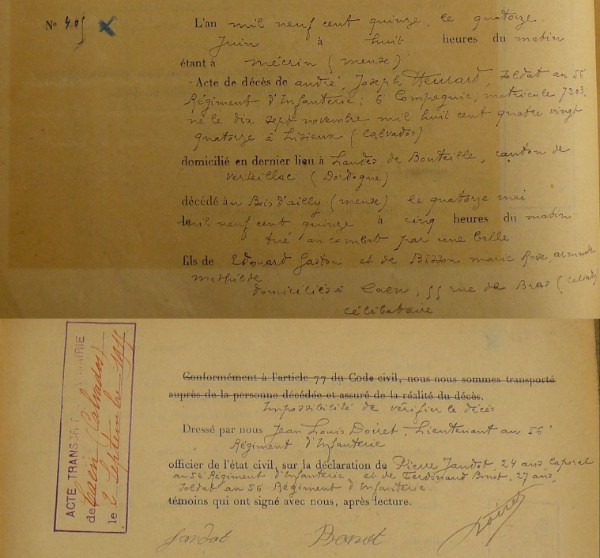 No 405
L'an mil neuf cent quinze, le quatorze
Juin à huit heures du matin
étant à Mécrin (Meuse)
Acte de décès de André, Joseph Heurard, Soldat au 56
Régiment d'Infanterie; 6 Compagnie, matricule 7203
né le dix sept novembre mil huit cent quatre vingt
quatorze à Lisieux (Calvados)
domicilié en dernier lieu à Landes de Bouteille, canton de
Verteillac (Dordogne)
décédé au Bois d'ailly (Meuse) le quatorze mai
mil neuf cent quinze à cinq heures du matin
tué au combat par une balle
fils de Edouard Gaston et de Bizson Marie Rose
Mathilde
domiciliés à Caen, 55 rue de Bras (Calvados)
Célibataire
Conformément à l'article 77 du Code civil, nous nous sommes transporté
auprès de la personne décédée et assuré de la réalité du décès.
Impossibilité de vérifier le décès
Dressé par nous Jean Louis Doiret, Lieutenant au 56e
Régiment d'Infanterie
officier de l'état civil, sur la déclaration de Pierre Jandot, 24 ans Caporal
au 56 Régiment d'Infanterie, et de Ferdinand Prost, 27 ans,
Soldat au 56 Régiment d'Infanterie.
témoins qui ont signé avec nous, après lecture.
Jandot Prost Doiret
ACTE TRANSCRIT MAIRIE
de Caen (Calvados)
le 2 Septembre 1915